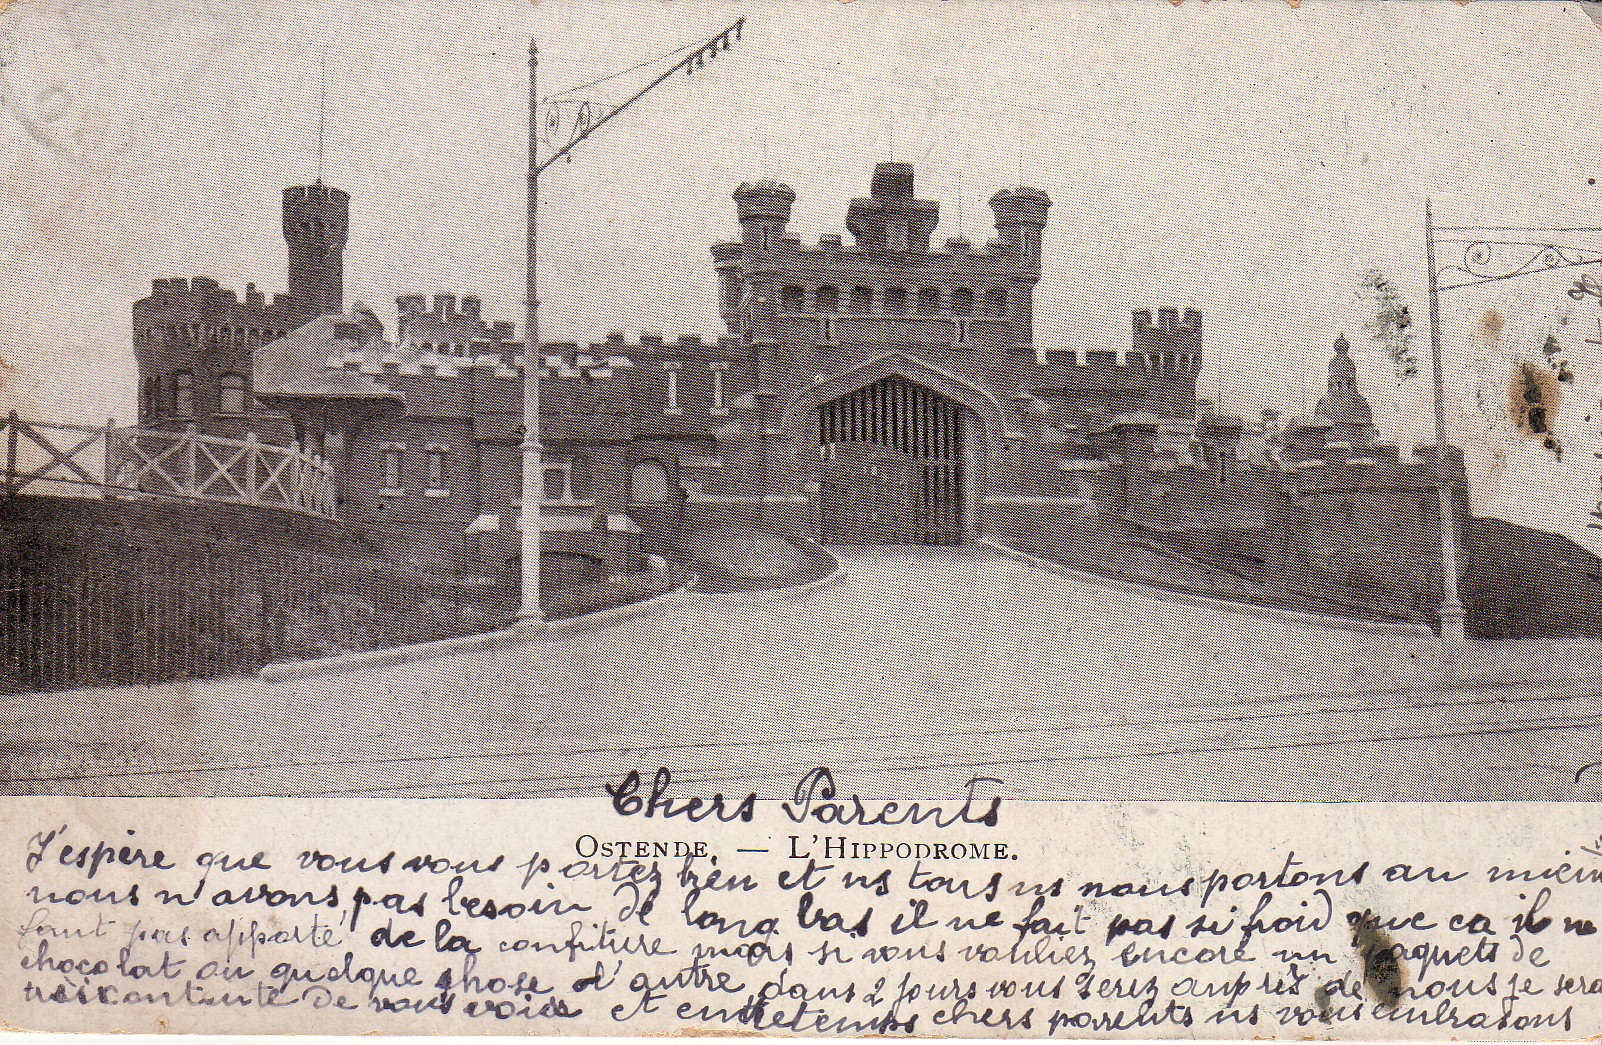 Chers Parents
OSTENDE. — L'HIPPODROME.
J'espère que vous vous portez bien et ns tous ns nous portons au mieux
nous n'avons pas besoin de long bas il ne fait pas si froid que ca il ne
faut pas apporté de la confiture mais si vous vouliez encore un paquets de
chocolat ou quelque chose d'autre dans 2 jours vous serez auprès de nous je sera
de vous voir et entretemps chers parents ns vous embrasons